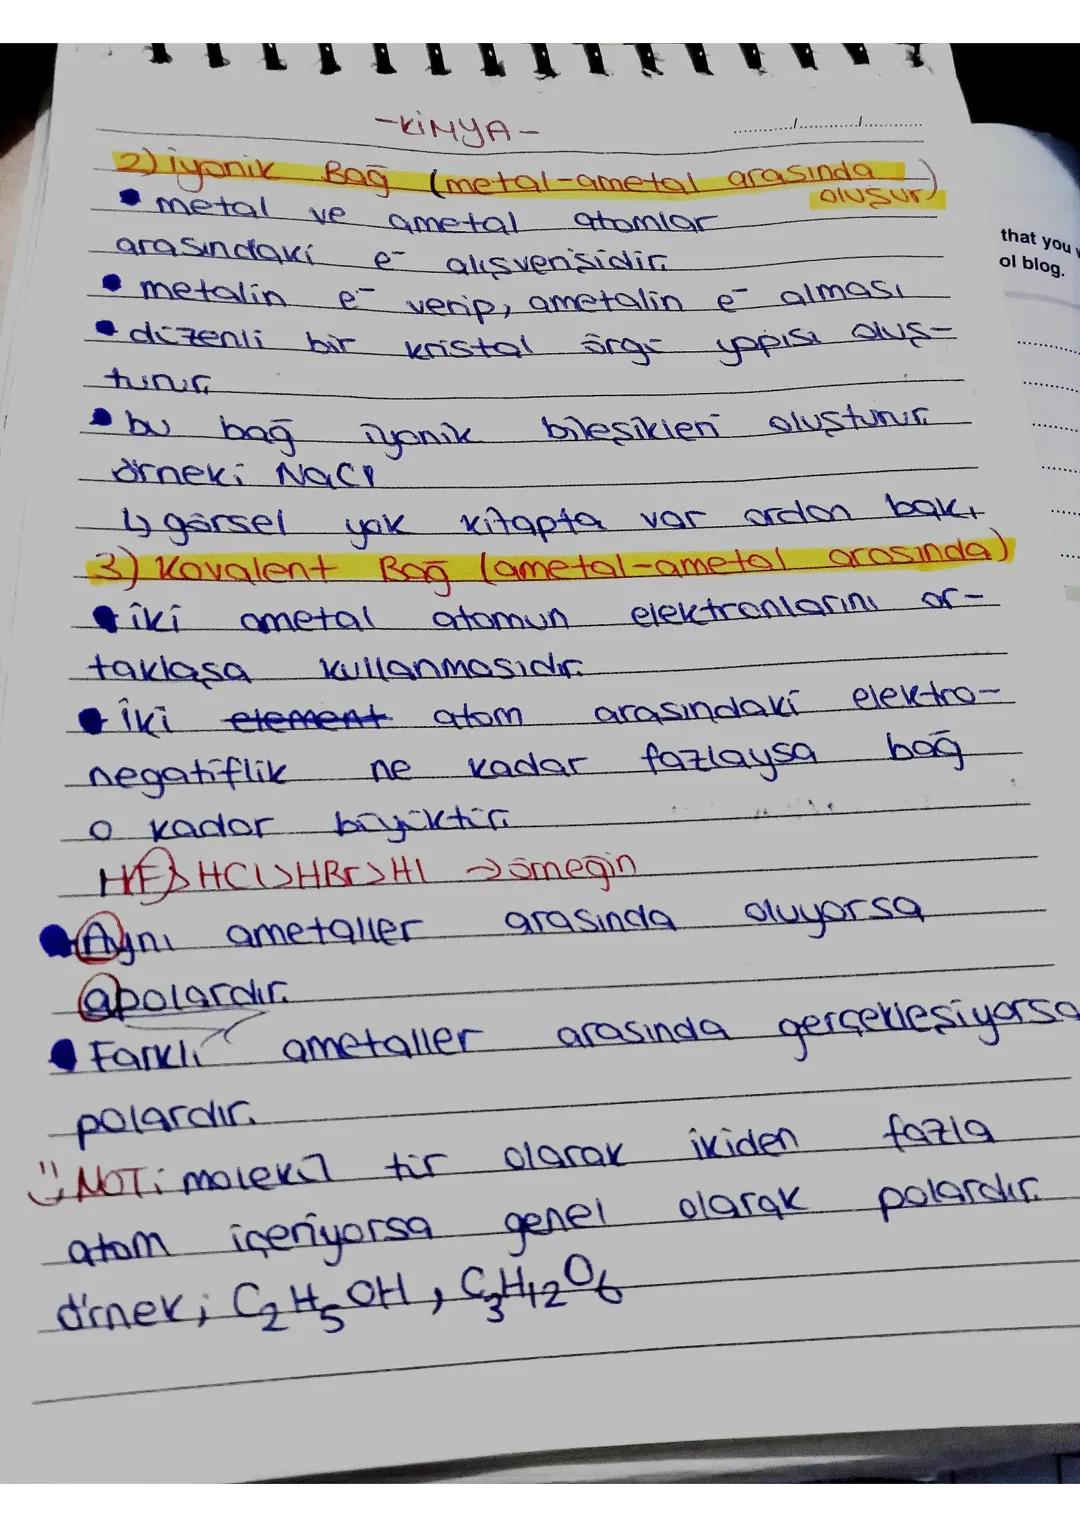 -KİMYA-
2) iyonik Bağ (metal-ametal arasında
oluşur)
• metal ve ametal atomlar
arasındaki e⁻ alışverişidir.
• metalin e⁻ verip, ametalin e⁻ alması
• düzenli bir kristal örgü yapısı oluş-
turur.
• bu bağ iyonik bileşikleri oluşturur.
örnek; NaCl
↳ görsel yok kitapta var ordan bak!
3) Kovalent Bağ (ametal-ametal arasında)
• iki ametal atomun elektronlarını or-
taklaşa kullanmasıdır.
• iki element atom arasındaki elektro-
negatiflik ne kadar fazlaysa bağ
o kadar büyüktür.
HF>HCl>HBr>HI → örneğin
• Aynı ametaller arasında oluyorsa
apolardır.
• Farklı ametaller arasında gerçekleşiyorsa
polardır.
NOT: molekül tür olarak ikiden fazla
atom içeriyorsa genel olarak polardır.
örnek; C₂H₅OH, C₃H₁₂O₆
that you
ol blog.